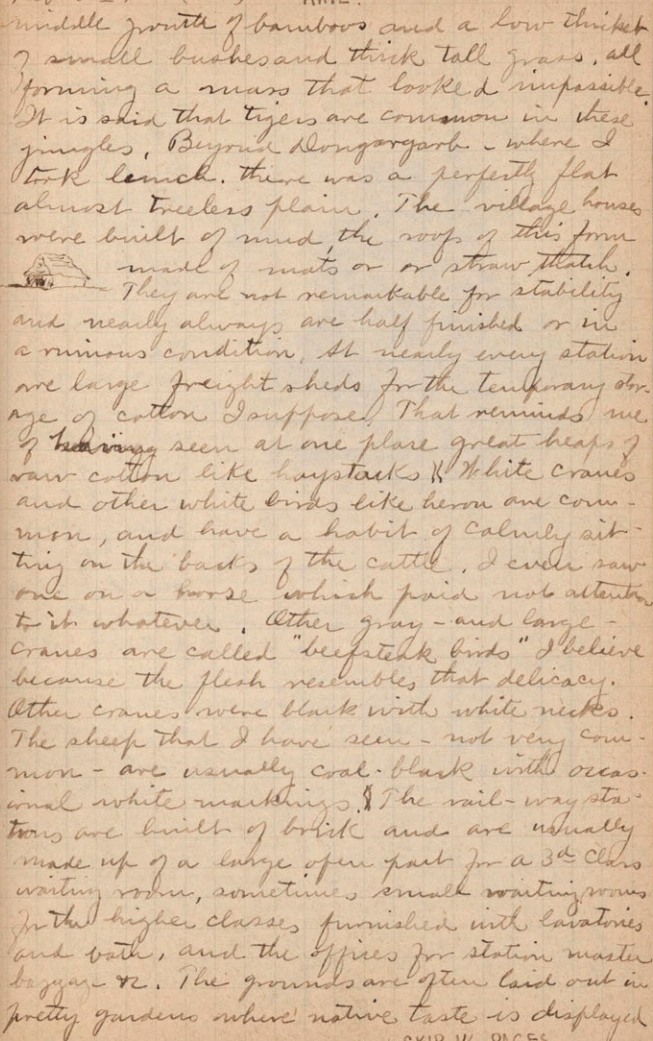 middle growth of bamboos and a low thicket
of small bushes and thick tall grass, all
forming a mass that looked impassible.
It is said that tigers are common in these
jungles. Beyond Dongargarh - where I
took lunch. there was a perfectly flat
almost treeless plain. The village houses
were built of mud, the roofs of this form
made of mats or or straw thatch.
They are not remarkable for stability
and nearly always are half finished or in
a ruinous condition. At nearly every station
are large freight sheds for the temporary stor-
age of cotton I suppose. That reminds me
of having seen at one place great heaps of
raw cotton like haystacks White cranes
and other white birds like heron are com-
mon, and have a habit of calmly sit-
ting on the backs of the cattle. I even saw
one on a horse which paid not attention
to it whatever. Other gray - and large -
cranes are called "beefsteak birds" I believe
because the flesh resembles that delicacy.
Other cranes were black with white necks.
The sheep that I have seen - not very com-
mon - are usually coal-black with occas-
ional white markings. The rail-way sta-
tions are built of brick and are usually
made up of a large open part for a 3d class
waiting room, sometimes small waiting rooms
for the higher classes furnished with lavatories
and bath, and the offices for station master
baggage &c. The grounds are often laid out in
pretty gardens where native taste is displayed
SKIP W. PAGES